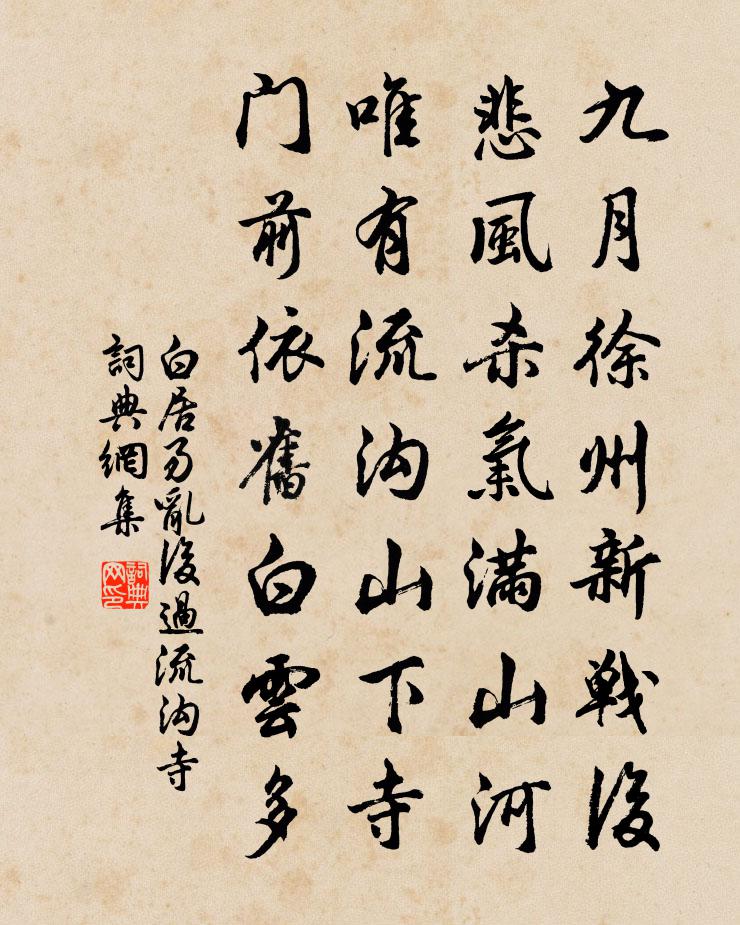 九月徐州新戰後
悲風杀氣滿山河
唯有流沟山下寺
门前依舊白雲多
白居易亂後過流沟寺
詞典網集
詞典网印